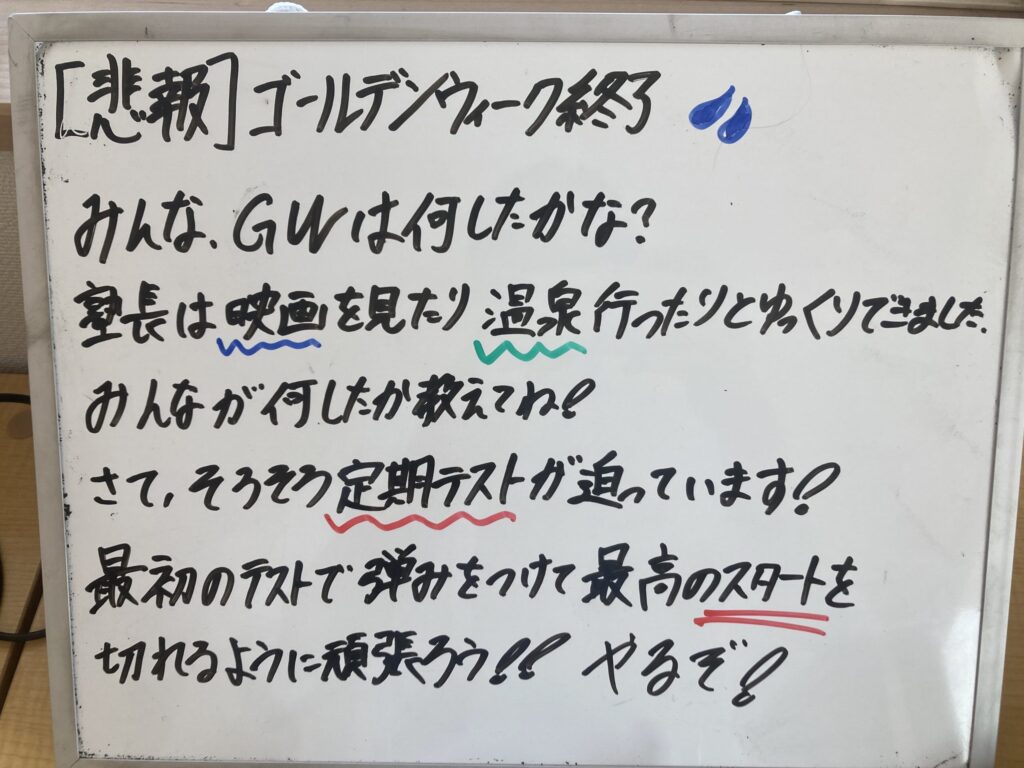 [悲報]ゴールデンウィーク終了
みんな、GWは何したかな?
塾長は映画を見たり温泉行ったりとゆっくりできました。
みんなが何したか教えてね!
さて、そろそろ定期テストが迫っています!
最初のテストで弾みをつけて最高のスタートを
切れるように頑張ろう!! やるぞ!